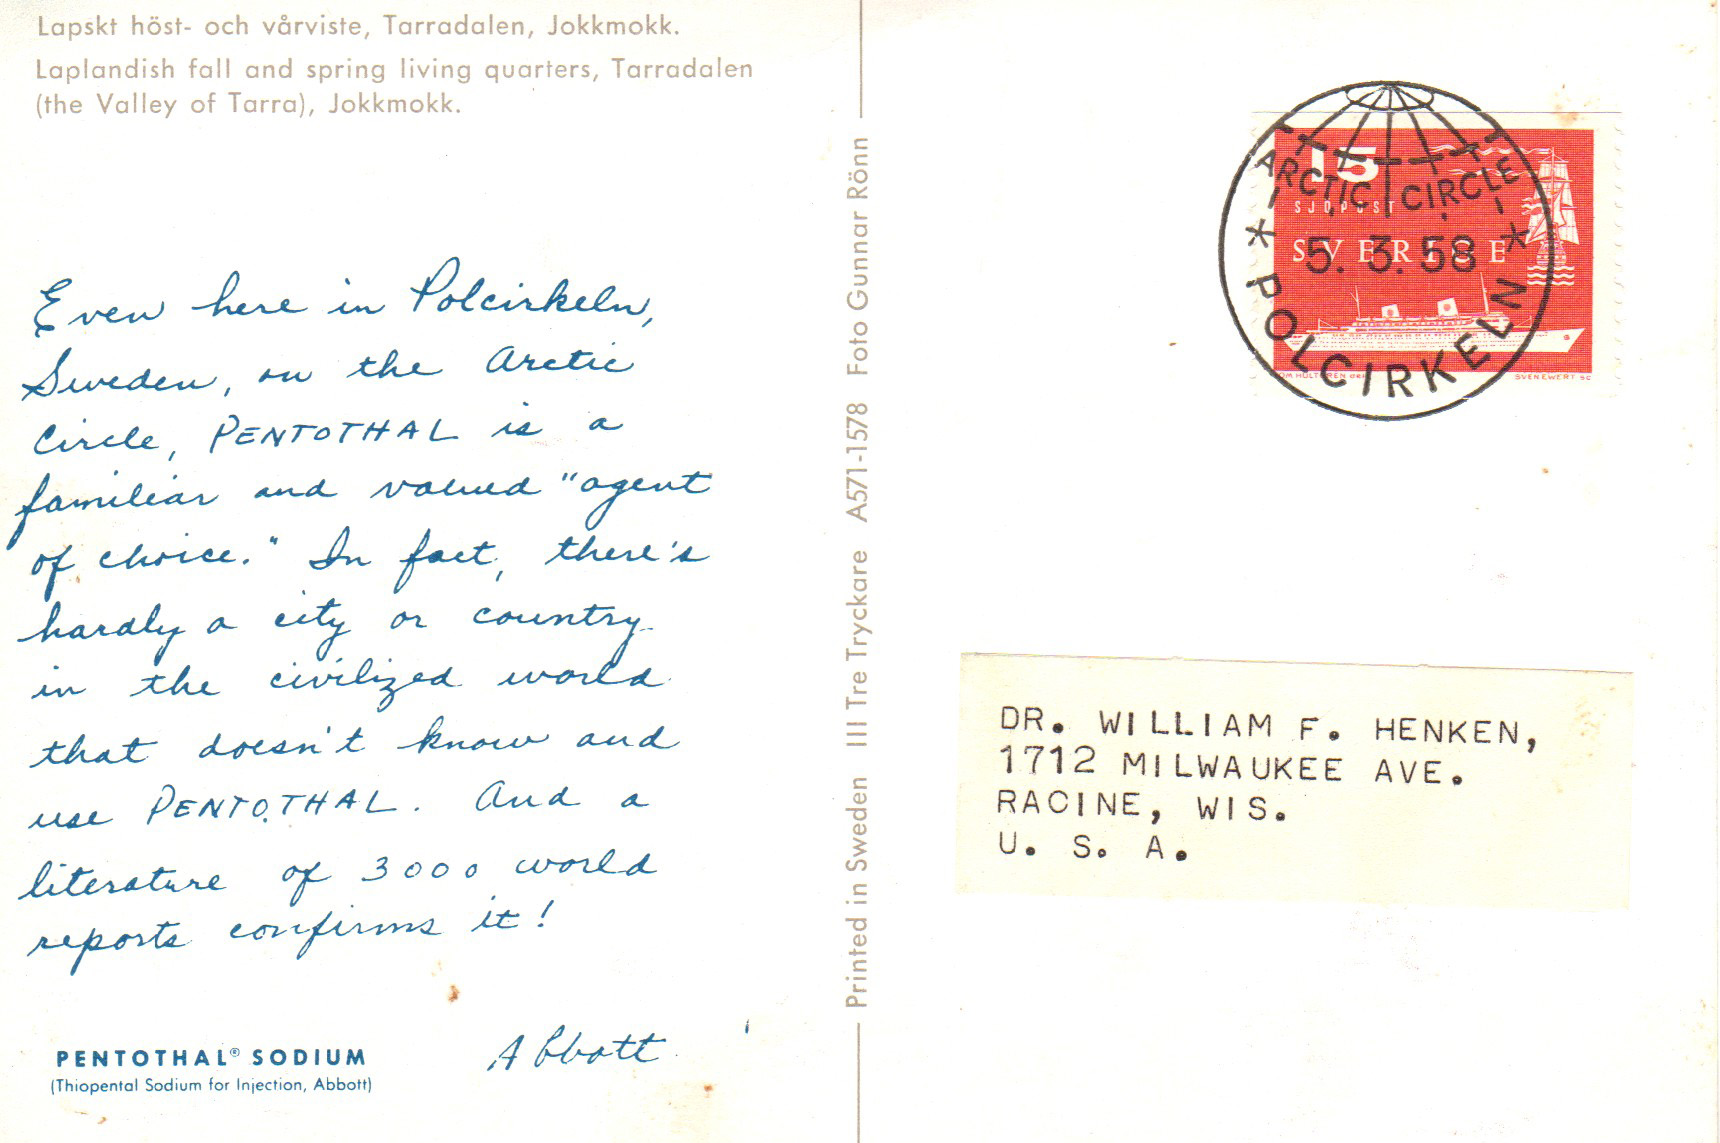 Lapskt höst- och vårviste, Tarradalen, Jokkmokk.
Laplandish fall and spring living quarters, Tarradalen
(the Valley of Tarra), Jokkmokk.
Even here in Polcirkeln,
Sweden, on the Arctic
Circle, PENTOTHAL is a
familiar and valued "agent
of choice." In fact, there's
hardly a city or country
in the civilized world
that doesn't know and
use PENTOTHAL. And a
literature of 3000 world
reports confirms it!
Abbott
PENTOTHAL® SODIUM
(Thiopental Sodium for Injection, Abbott)
Printed in Sweden III Tre Tryckare A571-1578 Foto Gunnar Rönn
15
SJÖPOST
SVERIGE
SVEN EWERT SC
ARCTIC CIRCLE
5. 3. 58
POLCIRKELN
DR. WILLIAM F. HENKEN,
1712 MILWAUKEE AVE.
RACINE, WIS.
U. S. A.